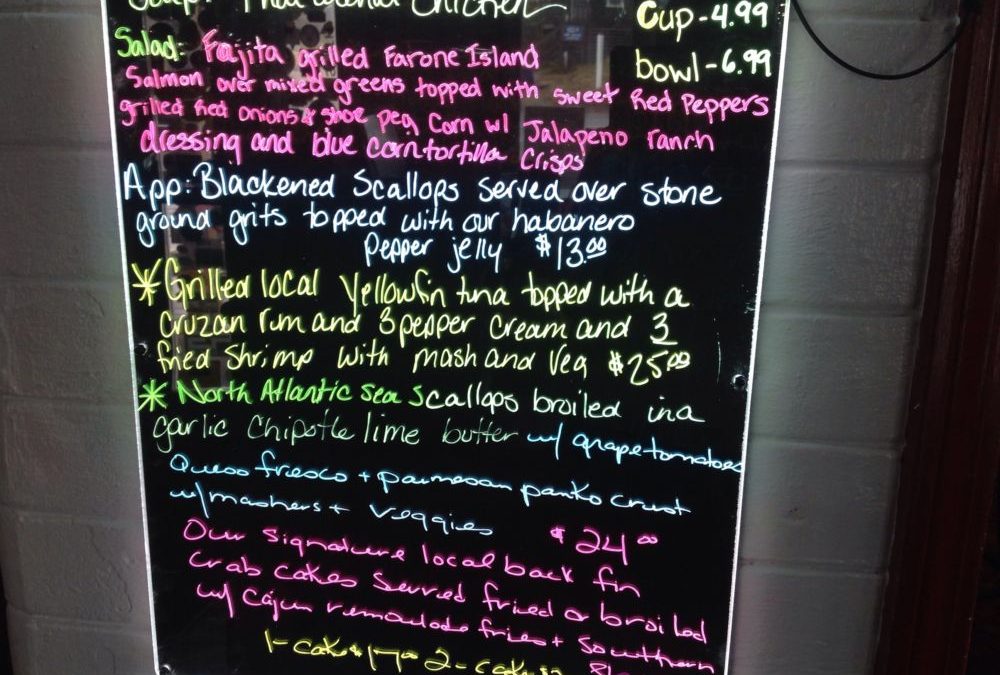 Soup: Thai Chicken
Cup - 4.99
Salad: Fajita grilled Farone Island
bowl - 6.99
Salmon over mixed greens topped with sweet Red Peppers
grilled Red onions & shoe peg Corn w/ Jalapeno ranch
dressing and blue corn tortilla Crisps
App: Blackened Scallops served over stone
ground grits topped with our habanero
Pepper jelly $13.00
*Grilled local Yellowfin tuna topped with a
Cruzan rum and 3 pepper cream and 3
fried shrimp with mash and veg $25.00
* North Atlantic Sea Scallops broiled in a
garlic Chipotle lime butter w/ grape tomatoes
Queso fresco + parmesan panko crust
w/ mashers + veggies $24.00
Our signature local back fin
Crab cakes Served fried or broiled
w/ Cajun remoulade fries + southern
1-cake $17.00 2-cakes